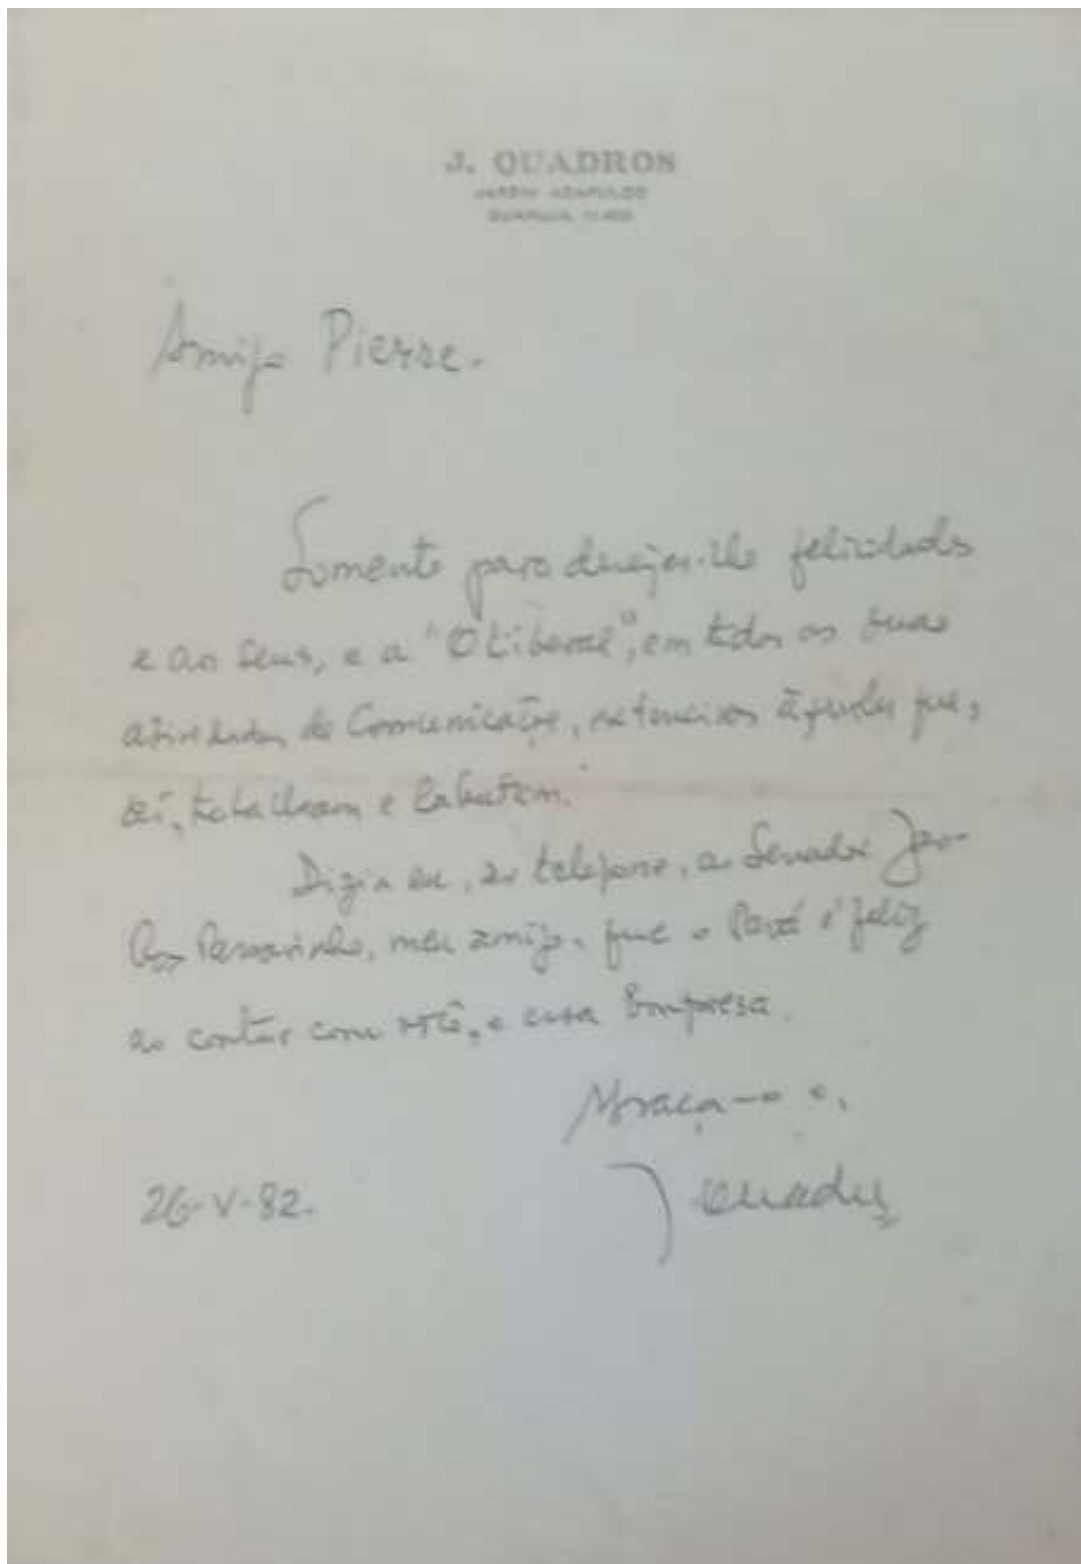 J. QUADROS
JARDIM ACAPULCO
GUARUJÁ
Amigo Pierre.
Somente para desejar-lhe felicidades
e aos seus, e a "O Liberal", em todas as suas
atividades de Comunicação, extensivos àqueles que,
aí, trabalham e labutam.
Dizia eu, ao telefone, ao Senador Jar-
bas Passarinho, meu amigo, que o Pará é feliz
ao contar com você, e essa Empresa.
Abraça-o o,
J Quadros
26-V-82.